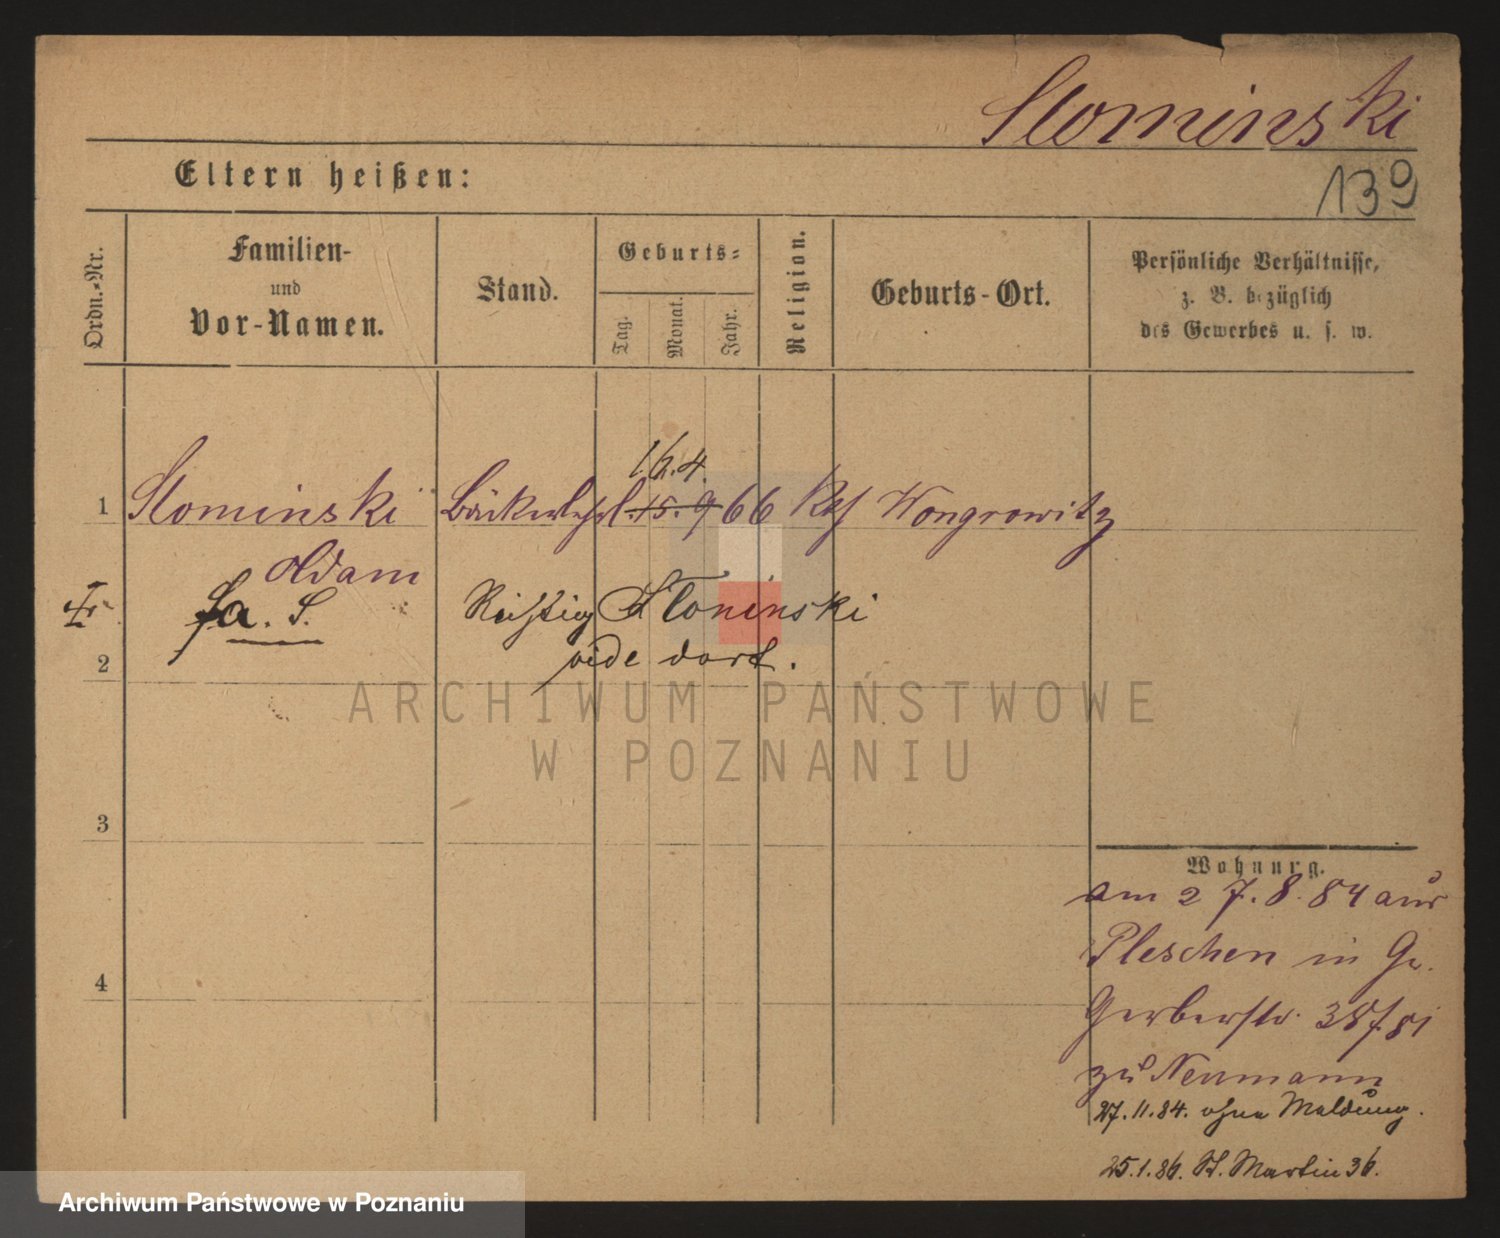 Slominski
139
Eltern heißen:
Ordn.-Nr.
Familien-
und
Vor-Namen.
Stand.
Geburts-
Tag.
Monat.
Jahr.
Religion.
Geburts-Ort.
Persönliche Verhältnisse,
z. B. bezüglich
des Gewerbes u. s. w.
16.4.
1 Slominski Bäckerlehrl. 15. 9 66 Kth Wongrowitz
Adam
fa. S. Richtig Sloninski
2 vide dort.
3
Wohnung.
am 27.8.84 aus
Pleschen in
4
Gerberstr. 38/81
zu Neumann
27.11.84. ohne Meldung.
25.1.86. St. Martin 36.
ARCHIWUM PAŃSTWOWE
W POZNANIU
Archiwum Państwowe w Poznaniu